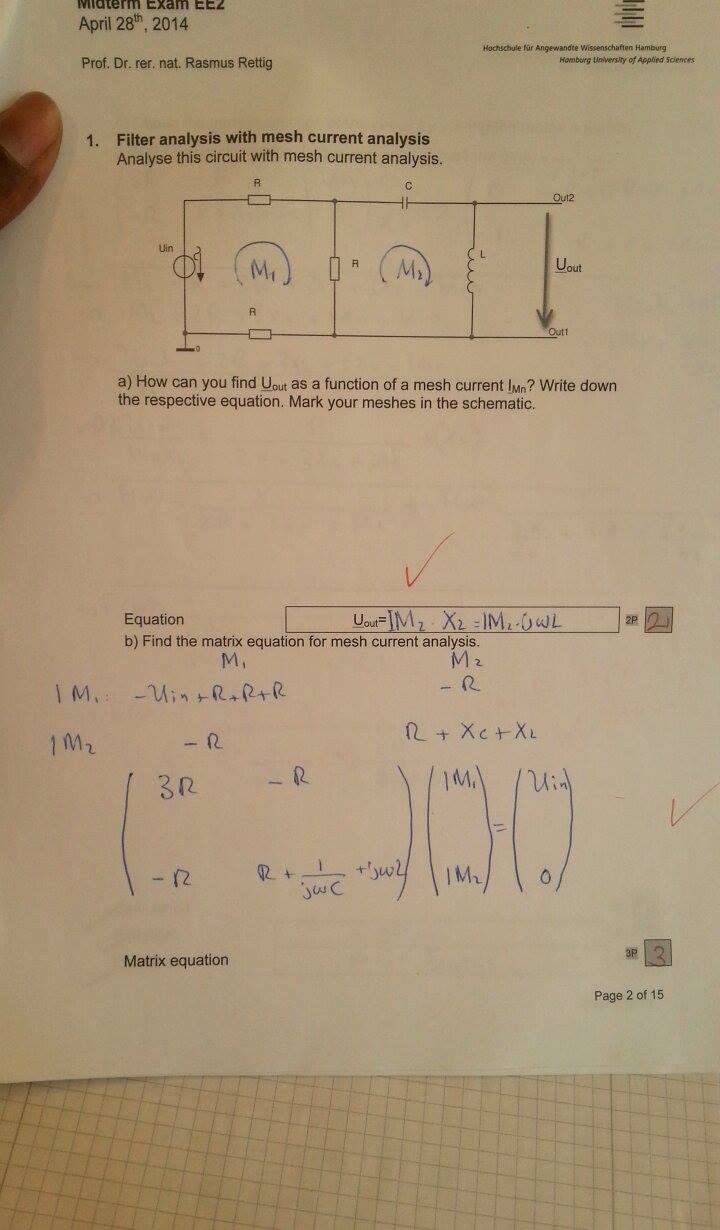 Midterm Exam EE2
April 28th, 2014
Hochschule für Angewandte Wissenschaften Hamburg
Hamburg University of Applied Sciences
Prof. Dr. rer. nat. Rasmus Rettig
1. Filter analysis with mesh current analysis
Analyse this circuit with mesh current analysis.
R C
Out2
Uin M1 R M2 L Uout
R
Out1
0
a) How can you find Uout as a function of a mesh current IMn? Write down
the respective equation. Mark your meshes in the schematic.
Equation Uout=IM2 · XL = IM2 · jωL 2P 2
b) Find the matrix equation for mesh current analysis.
M1 M2
IM1: -Uin + R + R + R - R
IM2 - R R + Xc + XL
3R - R IM1 = Uin
- R R + 1/jωC + jωL IM2 0
Matrix equation 3P 3
Page 2 of 15